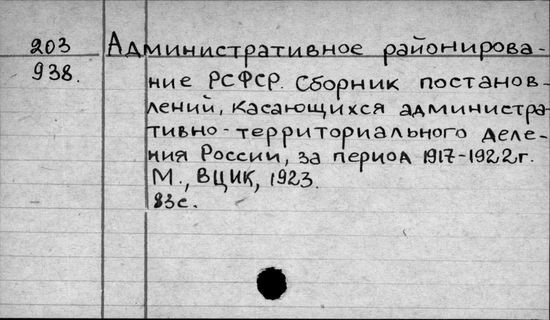 203 Административное районирова-
938. ние РСФСР. Сборник постанов-
лений, касающихся администра-
тивно-территориального деле-
ния России, за период 1917-1922г.
М., ВЦИК, 1923.
83с.